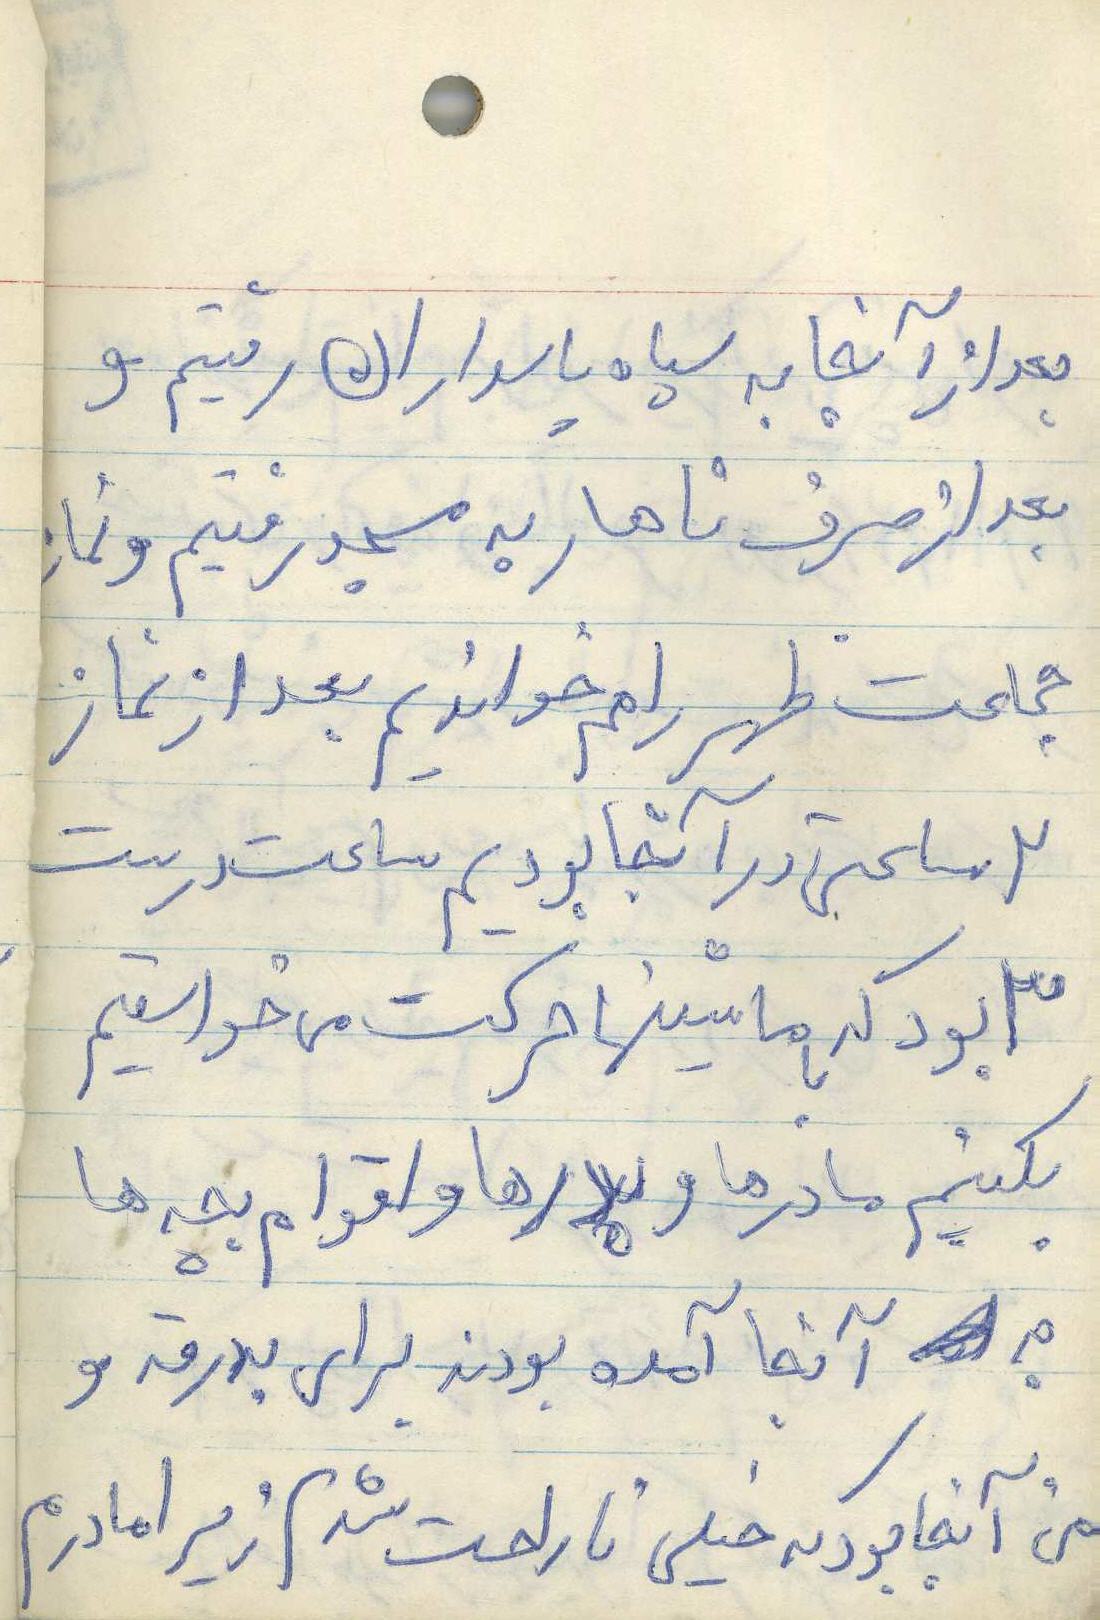 بعد از آنجا به سپاه پاسداران رفتیم و
بعد از صرف ناهار به مسجد رفتیم و نماز
جماعت ظهر را هم خواندیم بعد از نماز
۲ ساعتی در آنجا بودیم ساعت درست
۳ بود که با ماشینها حرکت می خواستیم
بکنیم مادرها و پدرها و اقوام بچه ها
به آنجا آمده بودند برای بدرقه و
من آنجا بود که خیلی ناراحت شدم زیرا مادرم